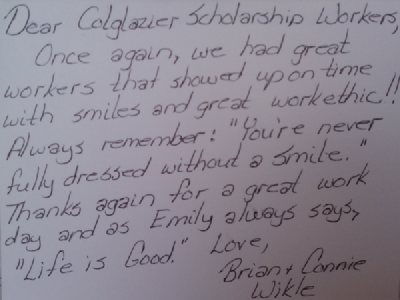 Dear Colglazier Scholarship Workers,
Once again, we had great
workers that showed up on time
with smiles and great work ethic!!
Always remember: "You're never
fully dressed without a smile."
Thanks again for a great work
day and as Emily always says,
"Life is Good." Love,
Brian + Connie
Wikle